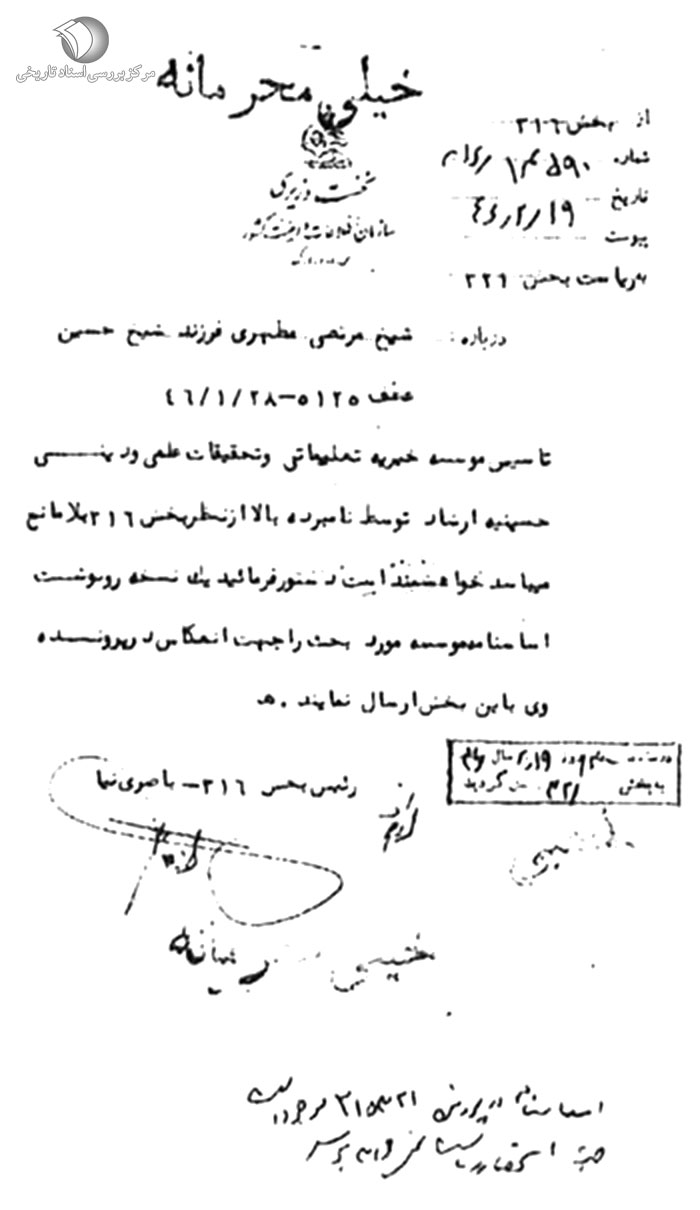 مرکز بررسی اسناد تاریخی
خیلی محرمانه
از بخش ۳۱۶
شماره
نخست وزیری
تاریخ ۴۶/۲/۱۹
سازمان اطلاعات و امنیت کشور
پیوست
به ریاست بخش ۳۲۱
درباره : شیخ مرتضی مطهری فرزند شیخ حسین
عطف ۵۱۲۵-۴۶/۱/۲۸
تاسیس موسسه خیریه تعلیماتی وتحقیقات علمی ودینی
حسینیه ارشاد توسط نامبرده بالا ازنظربخش ۳۱۶ بلامانع
میباشد خواهشمند است دستورفرمائید یک نسخه رونوشت
اساسنامه موسسه مورد بحث راجهت انعکاس درپرونده
وی باین بخش ارسال نمایند .ه
رئیس بخش ۳۱۶-
به بخش ۳۲۱ گردید
خیلی محرمانه
اساسنامه در